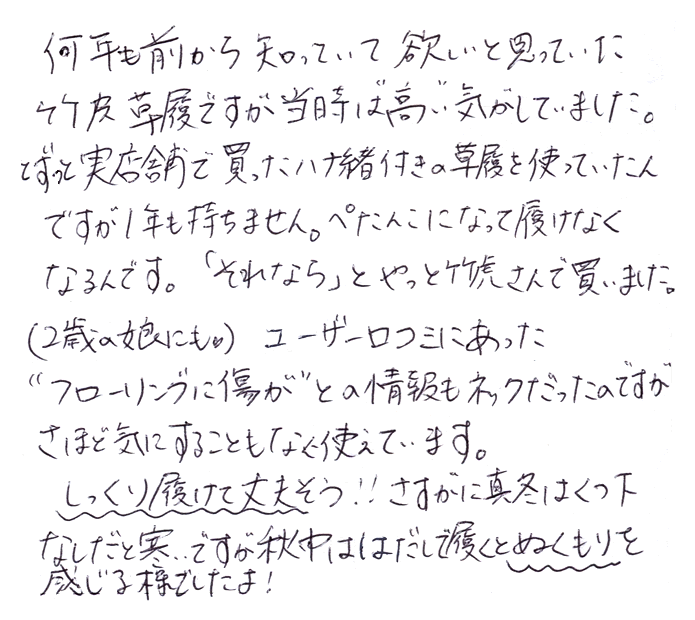 何年も前から知っていて欲しいと思っていた
竹皮草履ですが当時は"高い"気がしていました。
ずっと実店舗で買ったハナ緒付きの草履を使っていたん
ですが1年も持ちません。ぺたんこになって履けなく
なるんです。「それなら」とやっと竹虎さんで買いました。
(2歳の娘にも) ユーザー口コミにあった
"フローリングに傷が"との情報もネックだったのですが
さほど気にすることもなく使えています。
しっくり履けて丈夫そう!! さすがに真冬はくつ下
なしだと寒..ですが秋中ははだしで履くとぬくもりを
感じる様でしたよ!